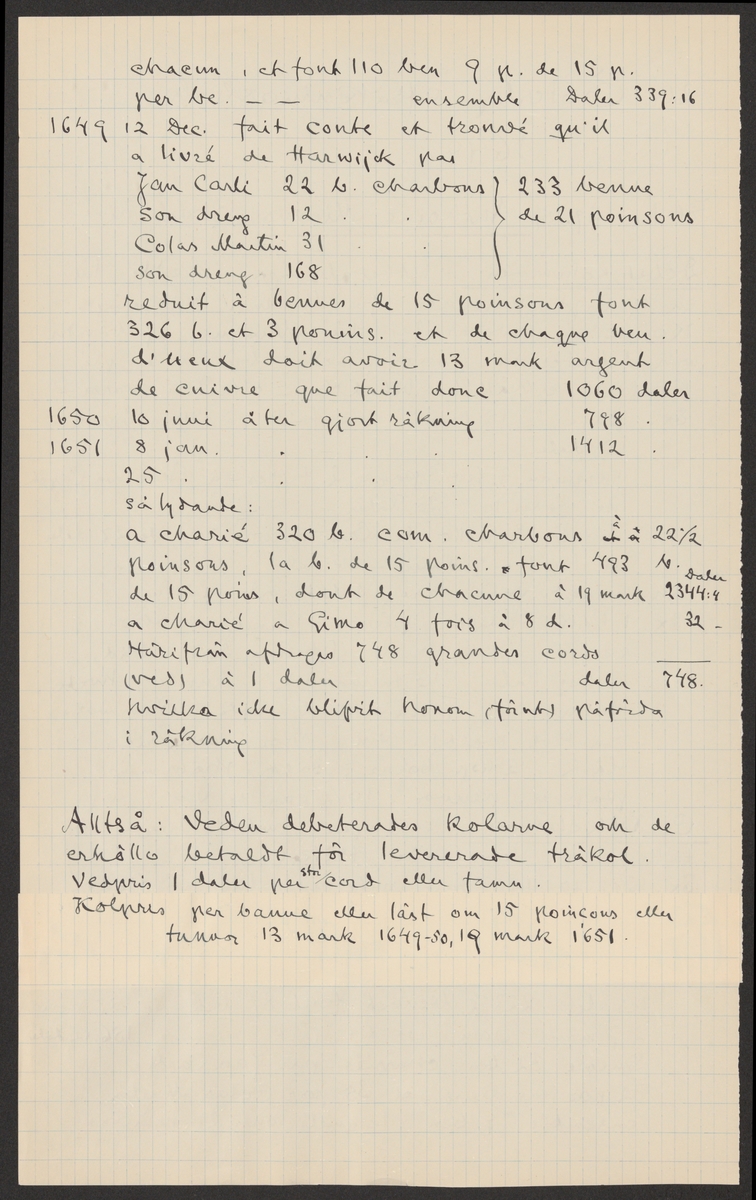 chacun, et font 110 ben 9 p. de 15 p.
per be. — — ensemble Daler 339:16
1649 12 Dec. fait conte et trouvé qu'il
a livré de Harwijck par
Jan Carli 22 b. charbons } 233 benne
son dreng 12 . . de 21 poinsons
Colas Martin 31 . .
son dreng 168
reduit à bennes de 15 poinsons font
326 b. et 3 poinins. et de chaque ben.
d'iceux doit avoir 13 mark argent
de cuivre que fait donc 1060 daler
1650 10 juni åter gjort räkning 798 .
1651 8 jan. . . . 1412 .
25 . . . .
sålydande:
a charié 320 b. com. charbons à 22 1/2
poinsons, la b. de 15 poins. font 493 b.
de 15 poins, dont de chacune à 19 mark Daler 2344:4
a charié a Gimo 4 fois à 8 d. 32 -
Härifrån afdrages 748 grandes cords
(ved) à 1 daler daler 748.
hvilka icke blifvit honom (förut) påförda
i räkning
Alltså: Veden debeterades kolarne och de
erhöllo betaldt för levererade träkol.
Vedpris 1 daler per str/cord eller famn.
Kolpris per banne eller läst om 15 poinçons eller
tunnor 13 mark 1649-50, 19 mark 1651.